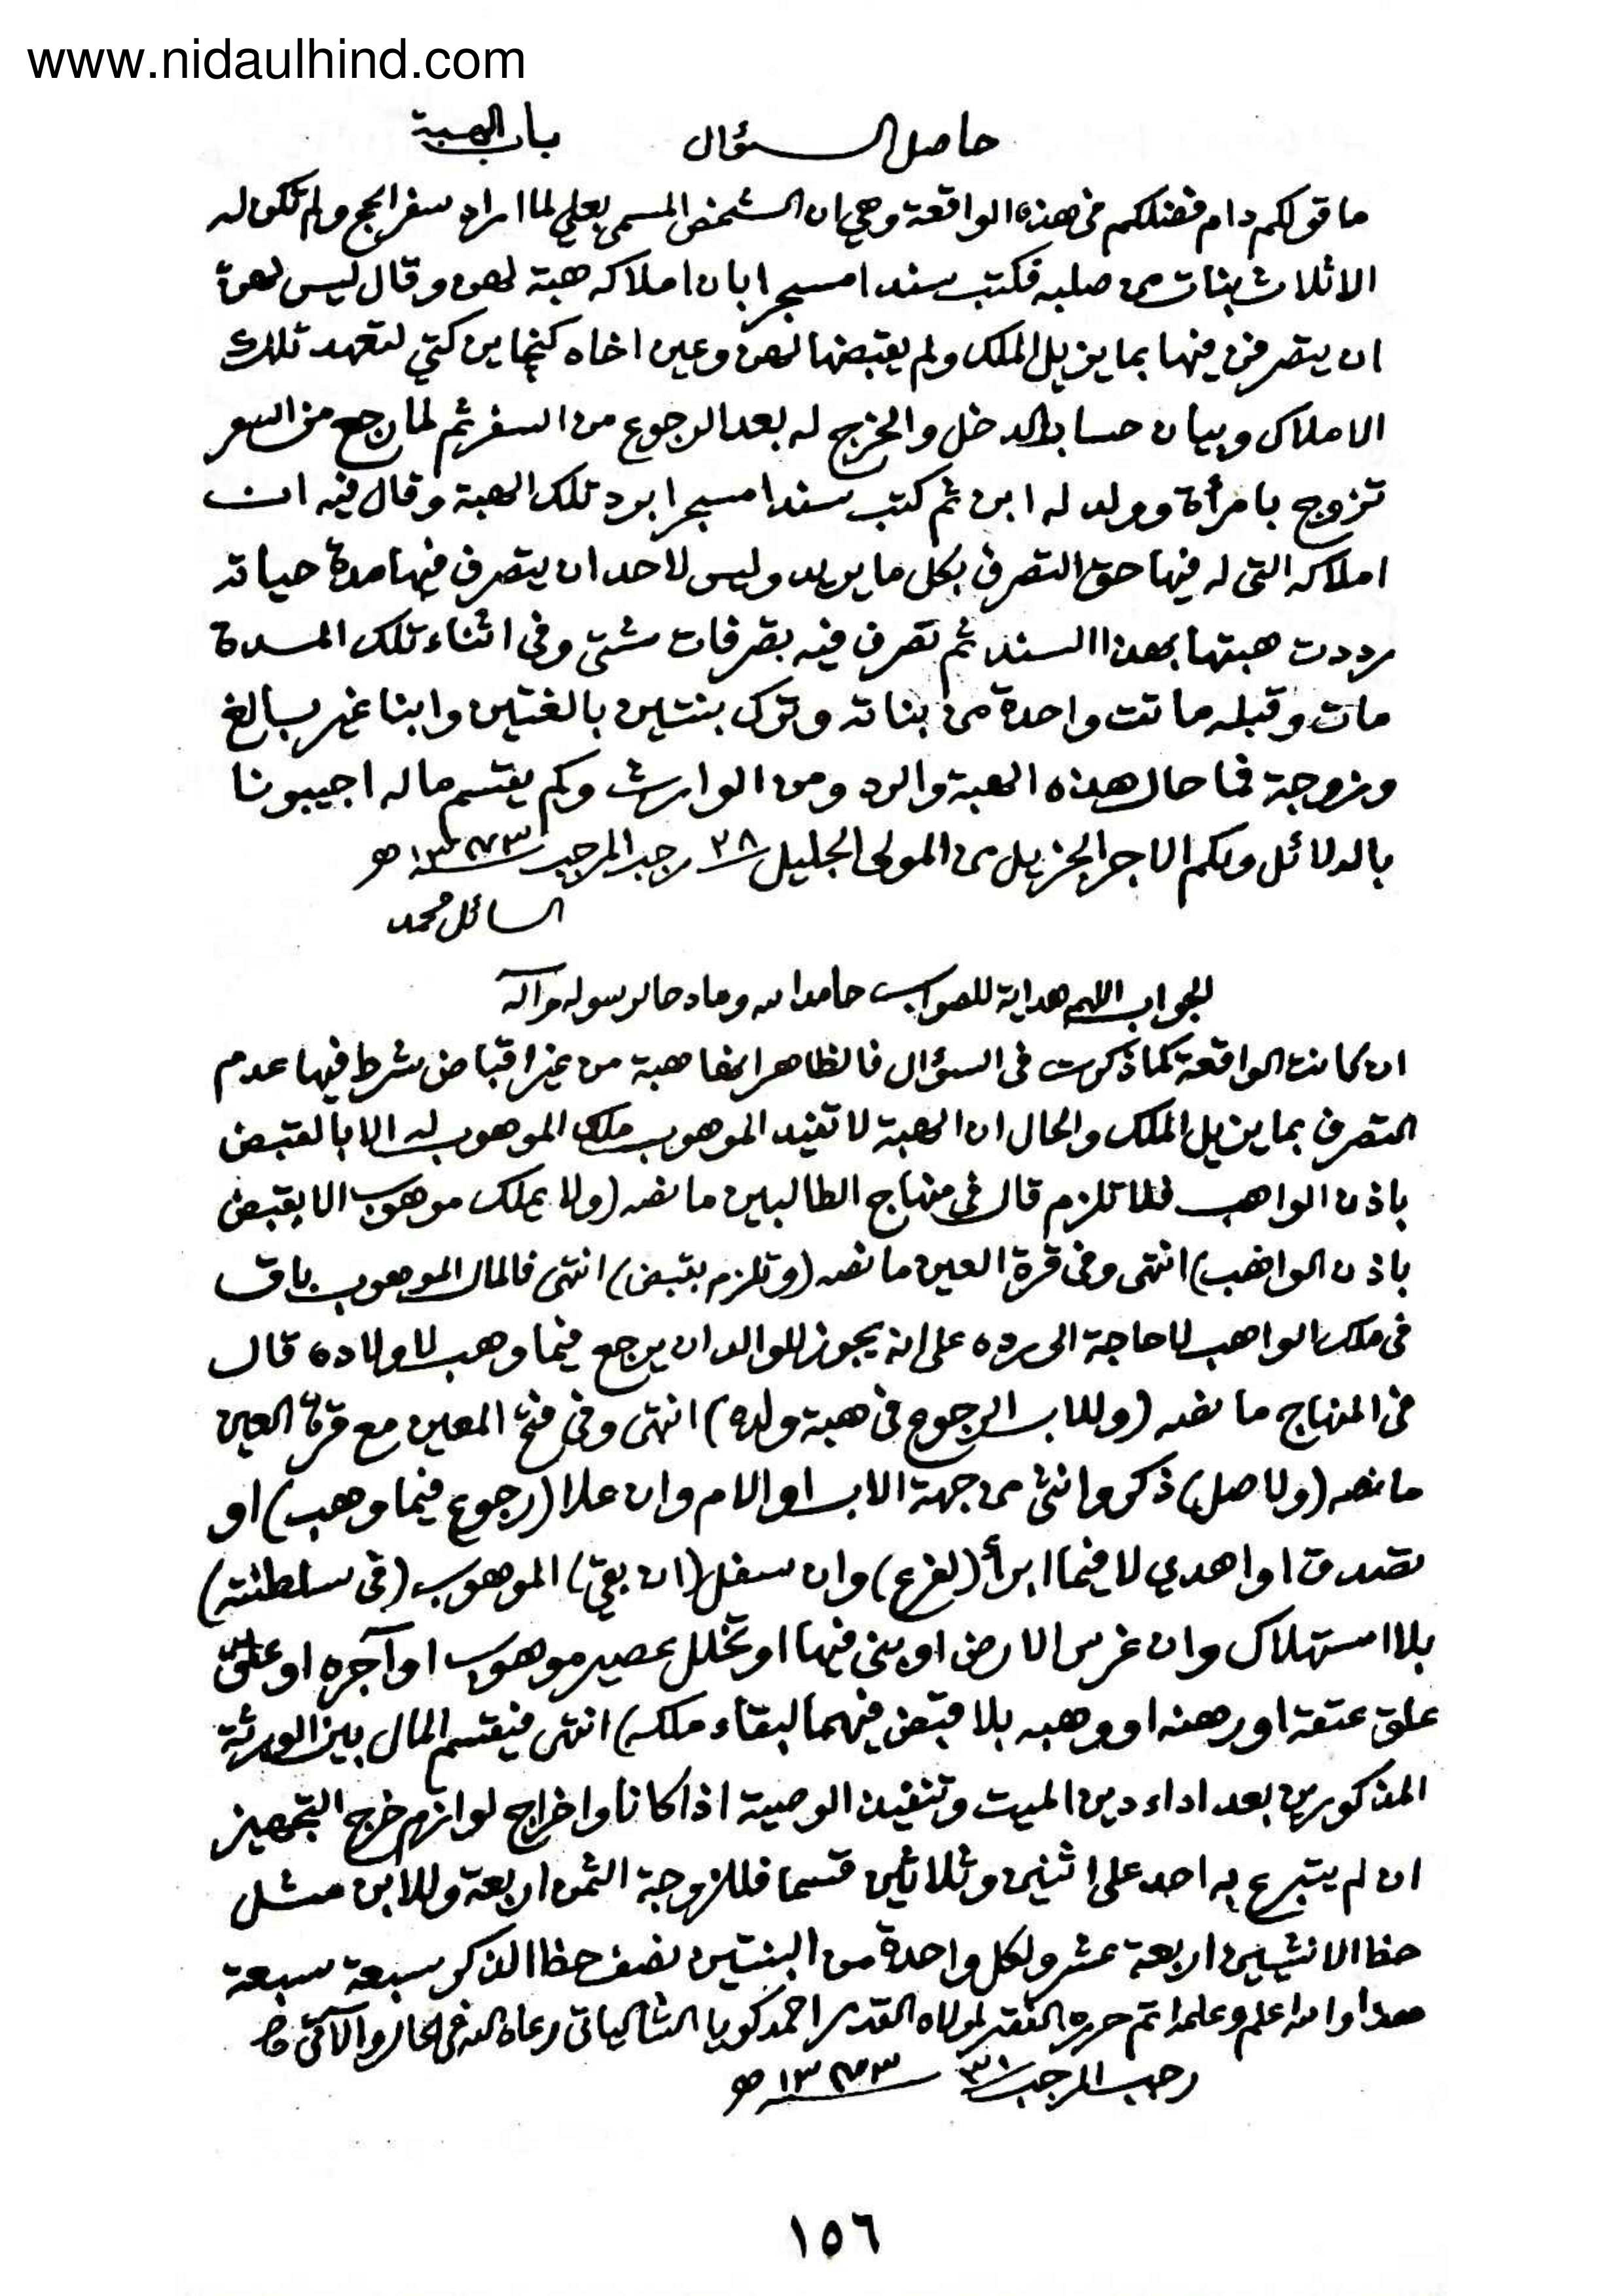 www.nidaulhind.com
حاصل السؤال باب الهبة
ما قولكم دام فضلكم فى هذه الواقعة وهي ان الشخص المسمى بعلي لما اراد سفر الحج ولم تكن له
الا ثلاث بنات من صلبه فكتب سندا مسجرا بان املاكه هبة لهن وقال ليس لهن
ان يتصرفن فيها بما يزيل الملك ولم يقبضها لهن وعين اخاه كنجاين كتي لتعهد تلك
الاملاك وبيان حساب الدخل والخرج له بعد الرجوع من السفر ثم لما رجع من السفر
تزوج بامرأة وولد له ابن ثم كتب سندا مسجرا برد تلك الهبة وقال فيه ان
املاكه التى له فيها حق التصرف بكل ما يريد وليس لاحد ان يتصرف فيها مدة حياته
رددت هبتها بهذا السند ثم تصرف فيه بصرفات شتى وفى اثناء تلك المدة
مات وقبله ماتت واحدة من بناته وترك بنتين بالغتين وابنا غير بالغ
وزوجة فما حال هذه الهبة والرد ومن الوارث وكم يقتسم ماله اجيبونا
بالدلائل ولكم الاجر الجزيل من المولى الجليل ٢٨ رجب المرجب ١٣٧٣ ھ
السائل محمد
الجواب اللهم هداية للصواب حامدا لله ومادحا لرسوله وآله
ان كانت الواقعة كما ذكرت فى السؤال فالظاهر انها هبة من غير اقباض شرط فيها عدم
التصرف بما يزيل الملك والحال ان الهبة لا تفيد الموهوب ملك الموهوب له الا بالقبض
باذن الواهب فلا تلزم قال فى منهاج الطالبين ما نصه (ولا يملك موهوب الا بقبض
باذن الواهب) انتهى وفى قرة العين ما نصه (وتلزم بقبض) انتهى فالمال الموهوب باق
فى ملك الواهب لا حاجة الى رده على انه يجوز للوالد ان يرجع فيما وهب لاولاده قال
فى المنهاج ما نصه (وللاب الرجوع فى هبة ولده) انتهى وفى فتح المعين مع قرة العين
ما نصه (ولاصل) ذكر وانثى من جهة الاب او الام وان علا (رجوع فيما وهب) او
تصدق او اهدي لا فيما ابرأ (لفرع) وان سفل (ان بقي) الموهوب (فى سلطنته)
بلا استهلاك وان غرس الارض او بنى فيها او تخلل عصير موهوب او آجره او علق
علق عتقه او رهنه او وهبه بلا قبض فيهما لبقاء ملكه) انتهى فيقتسم المال بين الورثة
المذكورين بعد اداء دين الميت وتنفيذ الوصية اذا كانا واخراج لوازم خرج التجهيز
ان لم يتبرع به احد على اثنين وثلاثين قسما فللزوجة الثمن اربعة وللابن مثل
حظ الانثيين اربعة عشر ولكل واحدة من البنتين نصف حظ الذكر سبعة سبعة
هذا والله اعلم وعلمه اتم حرره الفقير لمولاه القدير احمد كويا الشالياتى رعاه الله فى الحال والآتى
رجب المرجب ٣١ ١٣٧٣ ھ
١٥٦